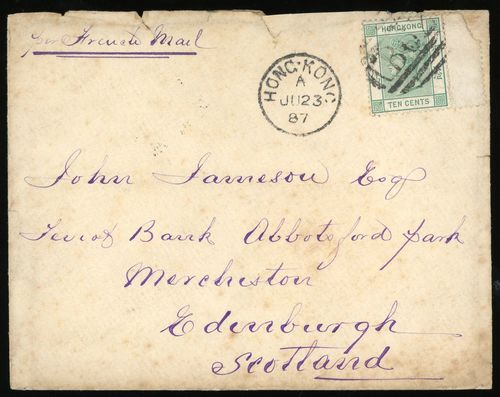 per French Mail
HONGKONG
TEN CENTS
HONG-KONG
A
JU 23
87
John Jameson Esq
Teviot Bank Abbotsford Park
Merchiston
Edinburgh
Scotland